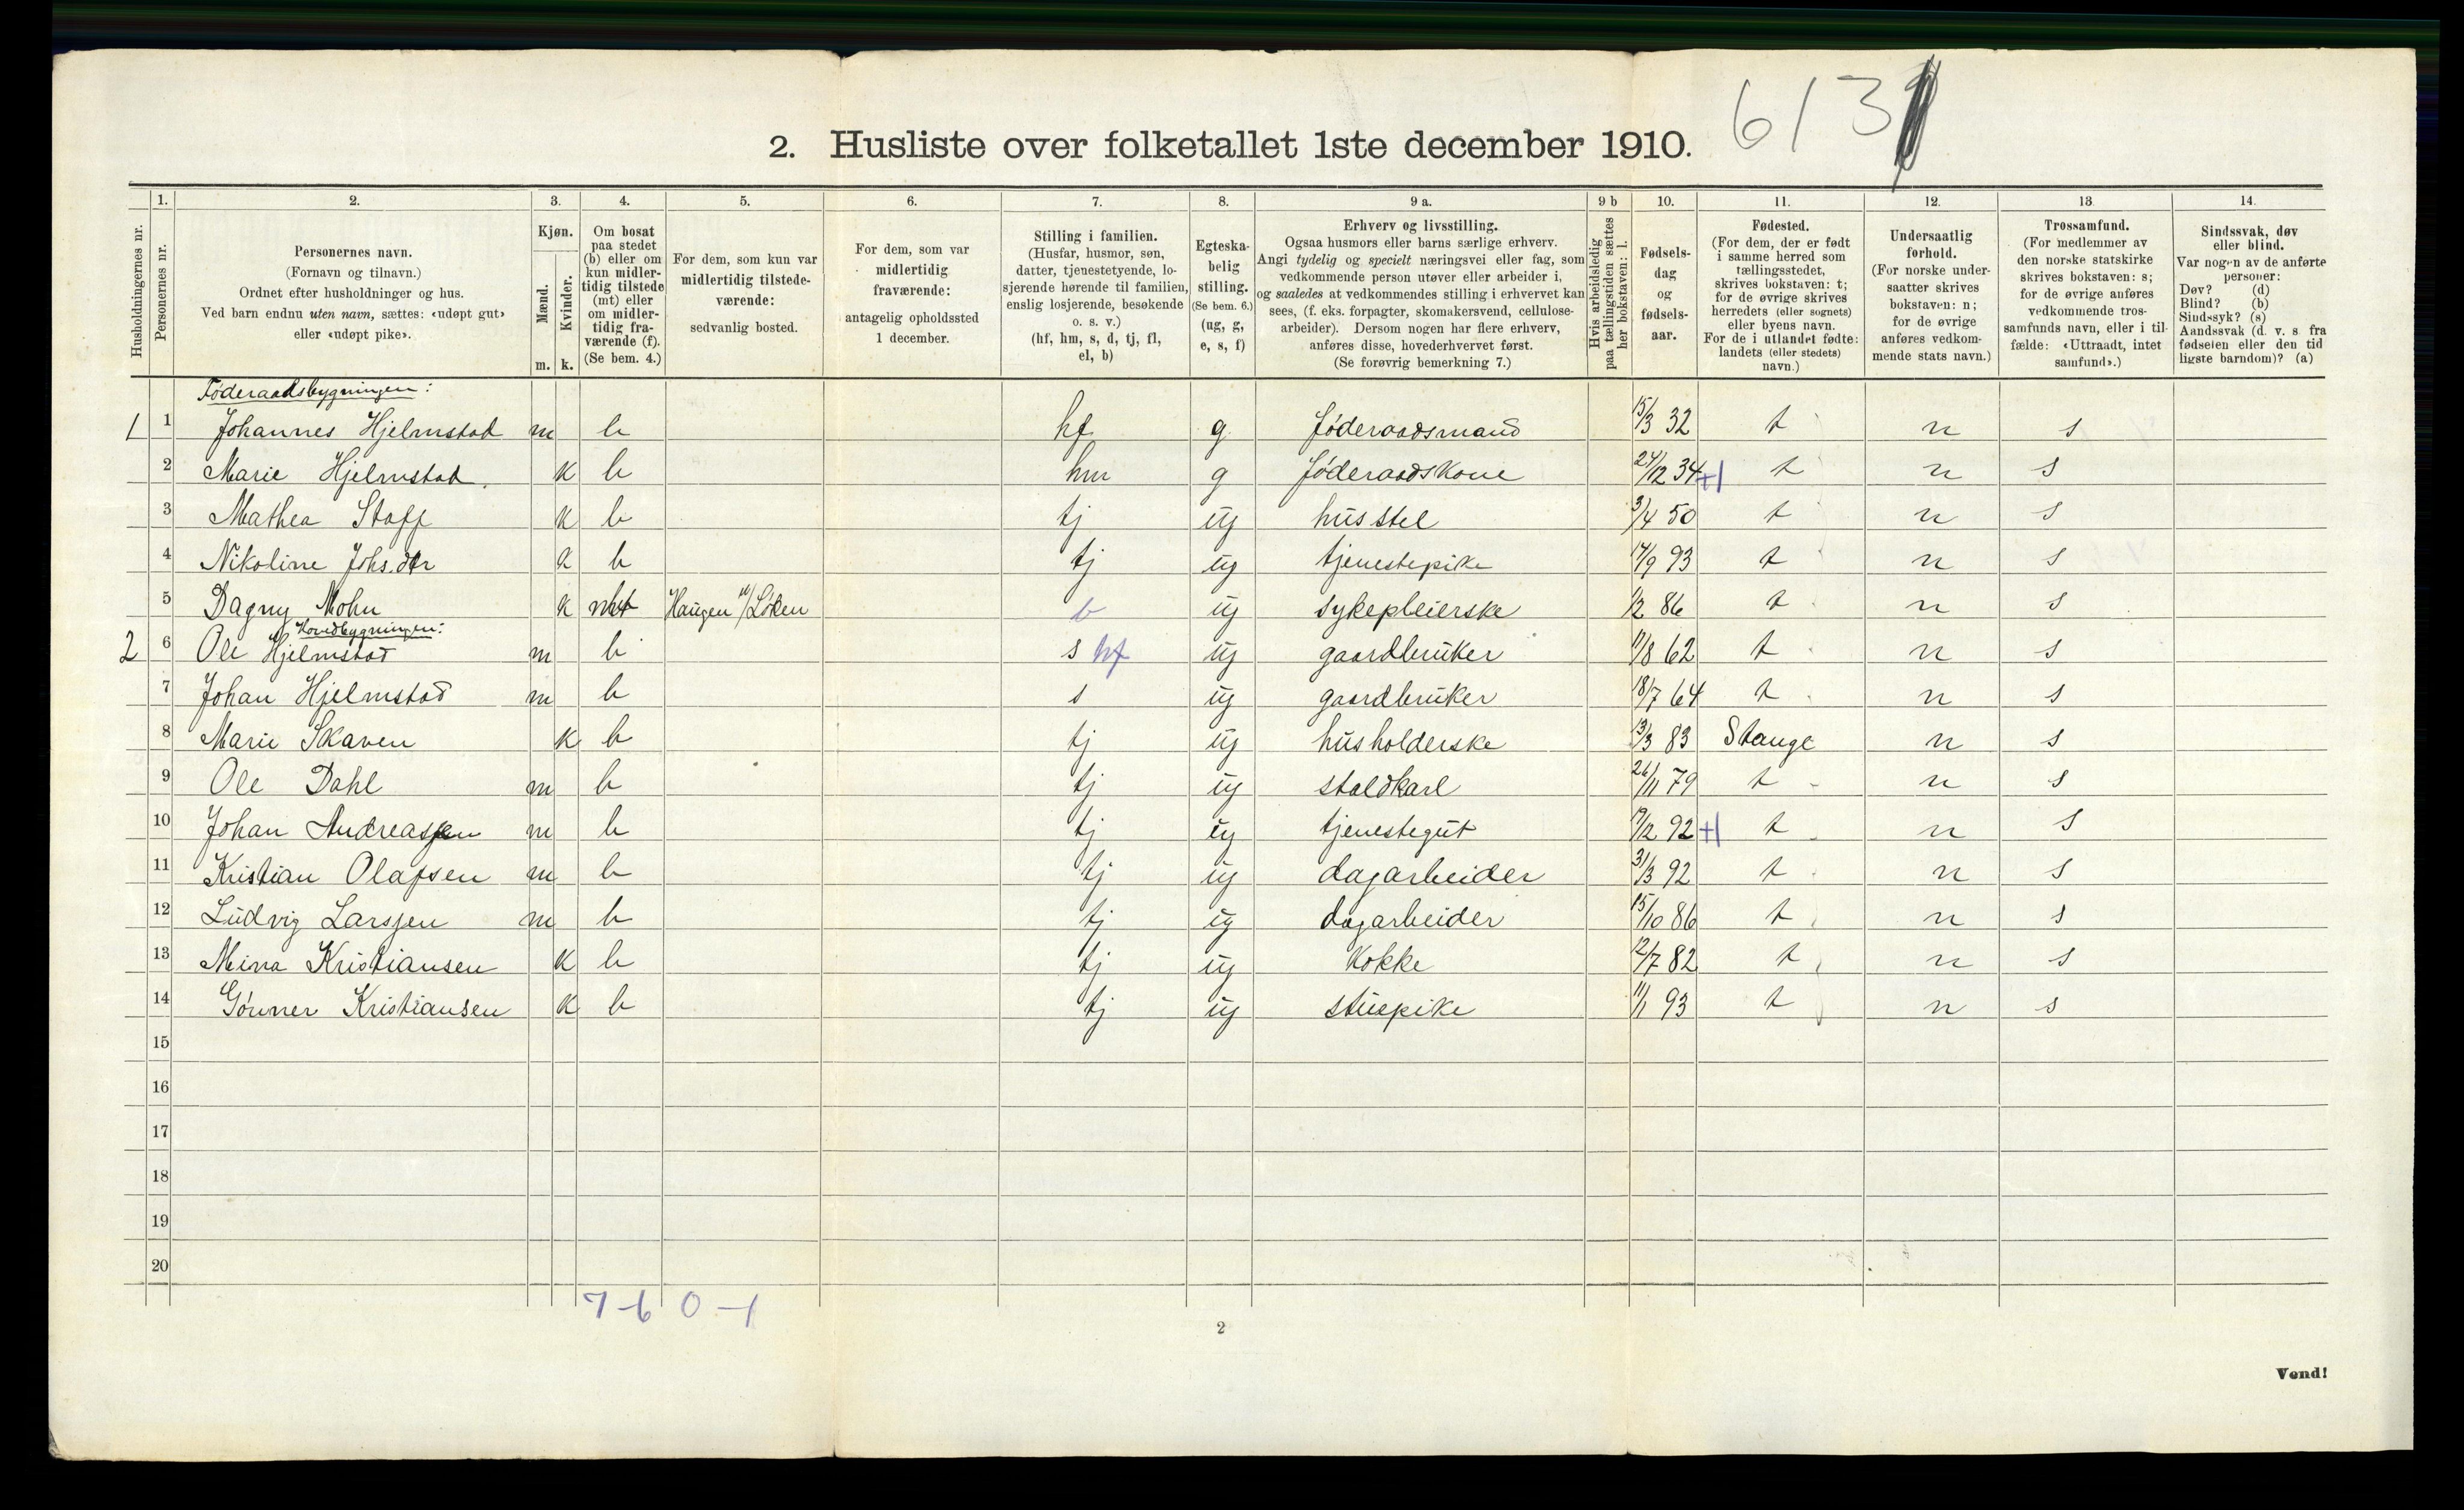 613
2. Husliste over folketallet 1ste december 1910.
Husholdningernes nr.
1.
Personernes nr.
2.
Personernes navn.
(Fornavn og tilnavn.)
Ordnet efter husholdninger og hus.
Ved barn endnu uten navn, sættes: «udøpt gut»
eller «udøpt pike».
3.
Kjøn.
Mænd.
Kvinder.
m. k.
4.
Om bosat
paa stedet
(b) eller om
kun midler-
tidig tilstede
(mt) eller
om midler-
tidig fra-
værende (f).
(Se bem. 4.)
5.
For dem, som kun var
midlertidig tilstede-
værende:
sedvanlig bosted.
6.
For dem, som var
midlertidig
fraværende:
antagelig opholdssted
1 december.
7.
Stilling i familien.
(Husfar, husmor, søn,
datter, tjenestetyende, lo-
sjerende hørende til familien,
enslig losjerende, besøkende
o. s. v.)
(hf, hm, s, d, tj, fl,
el, b)
8.
Egteska-
belig
stilling.
(Se bem. 6.)
(ug, g,
e, s, f)
9 a.
Erhverv og livsstilling.
Ogsaa husmors eller barns særlige erhverv.
Angi tydelig og specielt næringsvei eller fag, som
vedkommende person utøver eller arbeider i,
og saaledes at vedkommendes stilling i erhvervet kan
sees, (f. eks. forpagter, skomakersvend, cellulose-
arbeider). Dersom nogen har flere erhverv,
anføres disse, hovederhvervet først.
(Se forøvrig bemerkning 7.)
9 b
Hvis arbeidsledig
paa tællingstiden sættes
her bokstaven: l.
10.
Fødsels-
dag
og
fødsels-
aar.
11.
Fødested.
(For dem, der er født
i samme herred som
tællingsstedet,
skrives bokstaven: t;
for de øvrige skrives
herredets (eller sognets)
eller byens navn.
For de i utlandet fødte:
landets (eller stedets)
navn.)
12.
Undersaatlig
forhold.
(For norske under-
saatter skrives
bokstaven: n;
for de øvrige
anføres vedkom-
mende stats navn.)
13
Trossamfund.
(For medlemmer av
den norske statskirke
skrives bokstaven: s;
for de øvrige anføres
vedkommende tros-
samfunds navn, eller i til-
fælde: «Uttraadt, intet
samfund».)
14.
Sindssvak, døv
eller blind.
Var nogen av de anførte
personer:
Døv? (d)
Blind? (b)
Sindssyk? (s)
Aandssvak (d. v. s. fra
fødselen eller den tid
ligste barndom)? (a)
Føderaadsbygningen:
1 1 Johannes Hjelmstad m b hf g føderaadsmand 15/3 32 t n s
2 Marie Hjelmstad k b hm g føderaadskone 24/12 34 +1 t n s
3 Mathea Staff k b tj ug husstel 3/4 50 t n s
4 Nikoline Johs.dtr k b tj ug tjenestepike 14/9 93 t n s
5 Dagny Mohn k mt Haugen u/Løken b ug sykepleierske 1/2 86 t n s
Hovedbygningen:
2 6 Ole Hjelmstad m b s hf ug gaardbruker 11/8 62 t n s
7 Johan Hjelmstad m b s ug gaardbruker 18/7 64 t n s
8 Marie Skaven k b tj ug husholderske 13/3 83 Stange n s
9 Ole Dahl m b tj ug staldkarl 26/11 79 t n s
10 Johan Andreassen m b tj ug tjenestegut 19/12 92 +1 t n s
11 Kristian Olafsen m b tj ug dagarbeider 31/3 92 t n s
12 Ludvig Larssen m b tj ug dagarbeider 15/10 86 t n s
13 Mina Kristiansen k b tj ug kokke 12/7 82 t n s
14 Gunner Kristiansen k b tj ug stuepike 11/1 93 t n s
15
16
17
18
19
20
7-6 0-1
2
Vend!